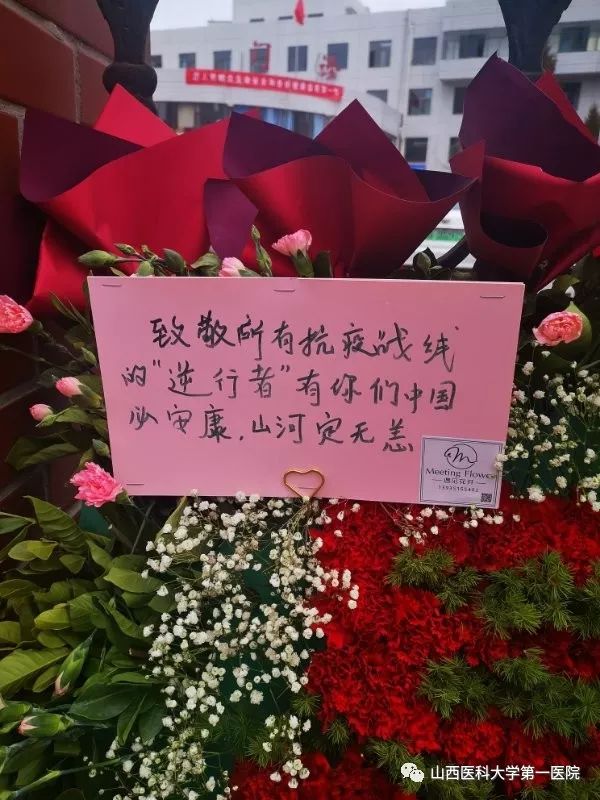 致敬所有抗疫战线
的"逆行者"有你们中国
必安康,山河定无恙
Meeting Flower
遇见花开
山西医科大学第一医院